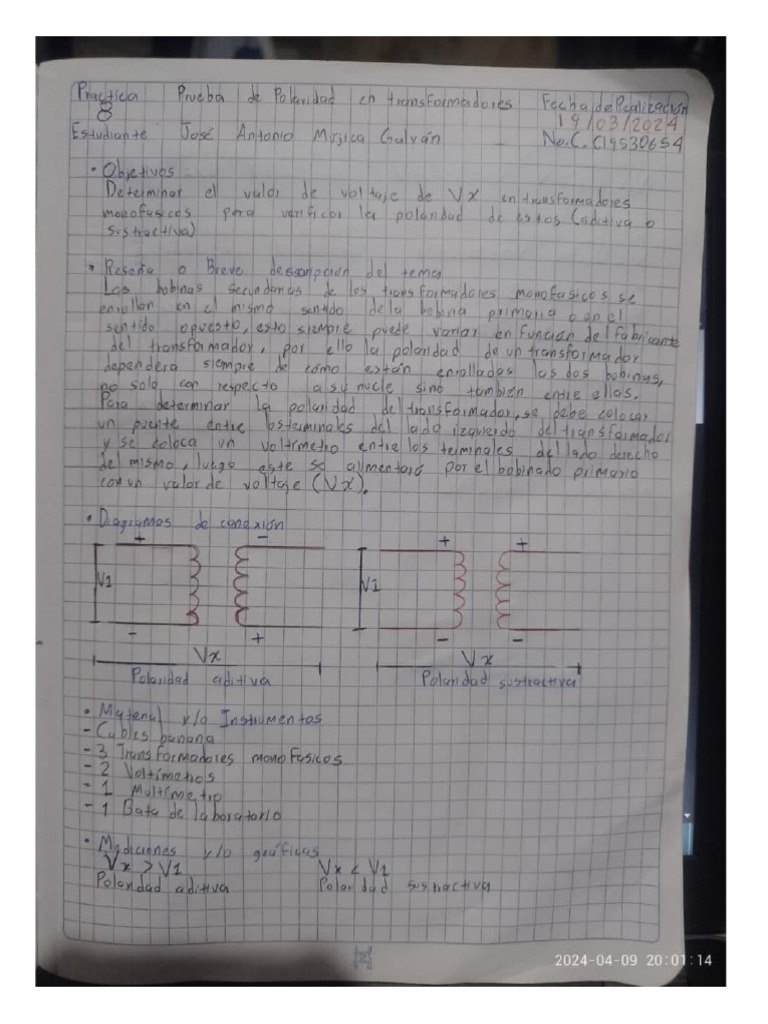 Practica Prueba de Polaridad en transformadores Fecha de Realización
8 19/03/2024
Estudiante José Antonio Mujica Galván No.C. C19530654
• Objetivos
Determinar el valor de voltaje de Vx en transformadores
monofasicos para verificar la polaridad de estos (aditiva o
sustractiva)
• Reseña o Breve descripción del tema
Las bobinas secundarias de los transformadores monofasicos se
enrollan en el mismo sentido de la bobina primaria o en el
sentido opuesto, esto siempre puede variar en función del fabricante
del transformador, por ello la polaridad de un transformador
dependera siempre de como están enrollados las dos bobinas,
no solo con respecto a su nucle sino tambien entre ellas.
Para determinar la polaridad del transformador, se debe colocar
un puente entre los terminales del lado izquierdo del transformador
y se coloca un voltimetro entre los terminales del lado derecho
del mismo, luego este se alimentará por el bobinado primario
con un valor de voltaje (Vx).
• Diagramas de conexión
+ - + +
V1 V1
- + - -
Vx Vx
Polaridad aditiva Polaridad sustractiva
• Material y/o Instrumentos
- Cables banana
- 3 Transformadores monofasicos
- 2 Voltímetros
- 1 Multimetro
- 1 Bata de laboratorio
• Mediciones y/o graficas
Vx > V1 Vx < V1
Polaridad aditiva Polaridad sustractiva
2024-04-09 20:01:14